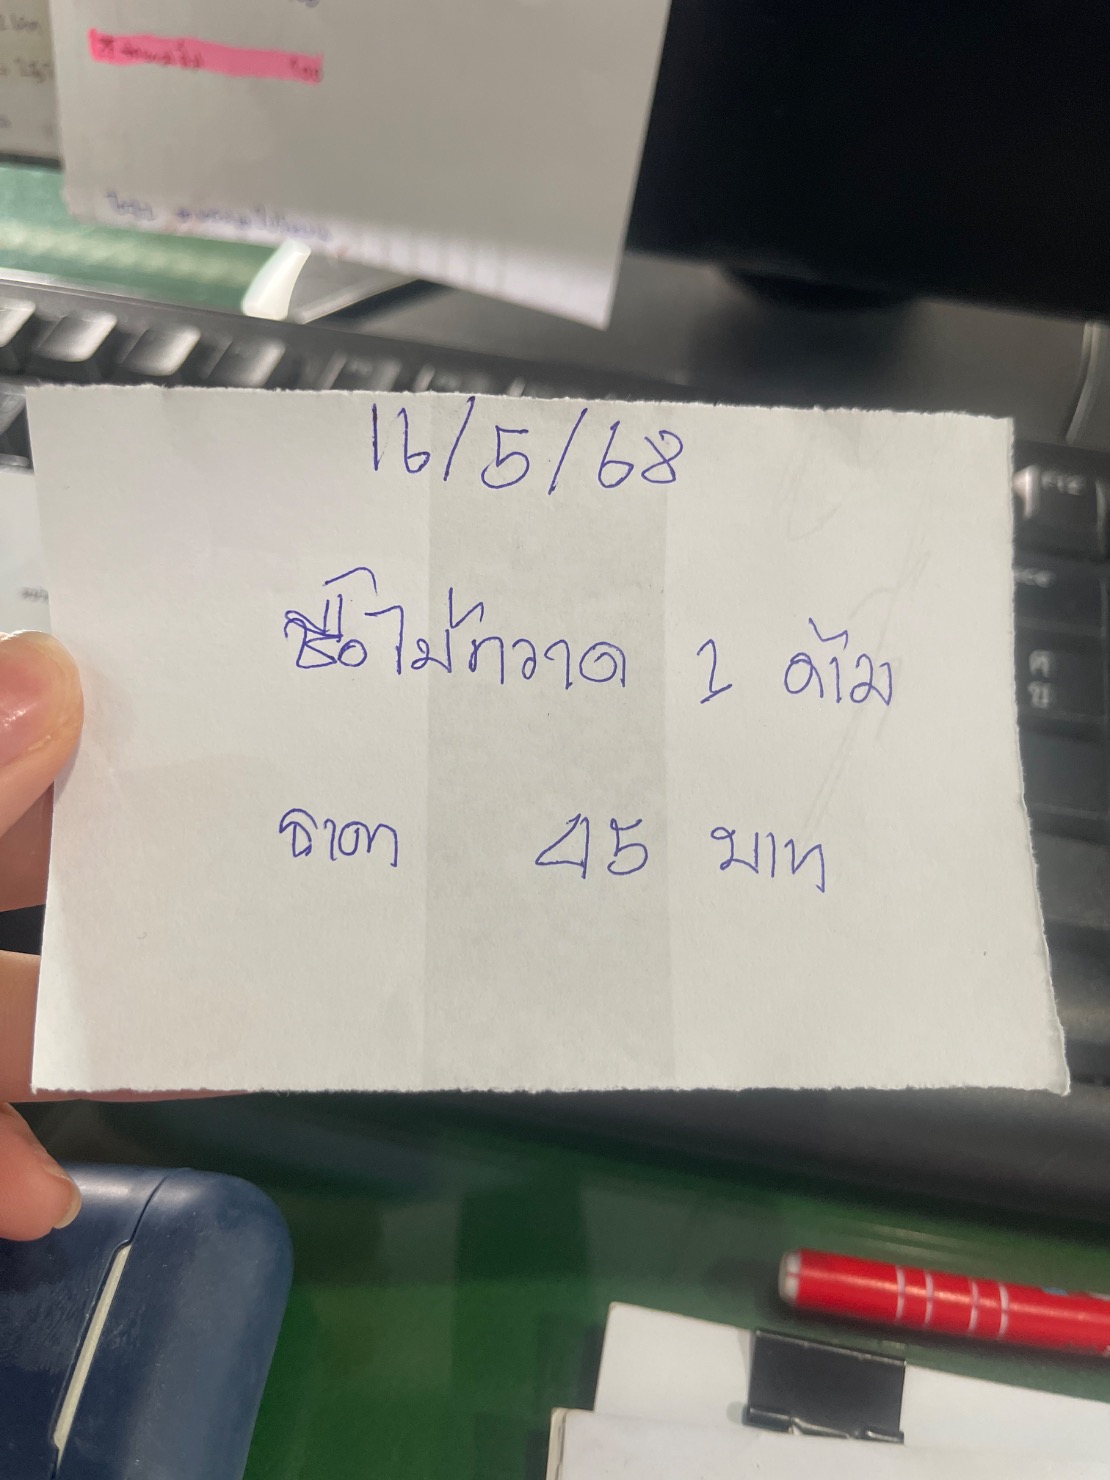 16/5/68
ซื้อไม้กวาด 1 ด้าม
ราคา 45 บาท
F12